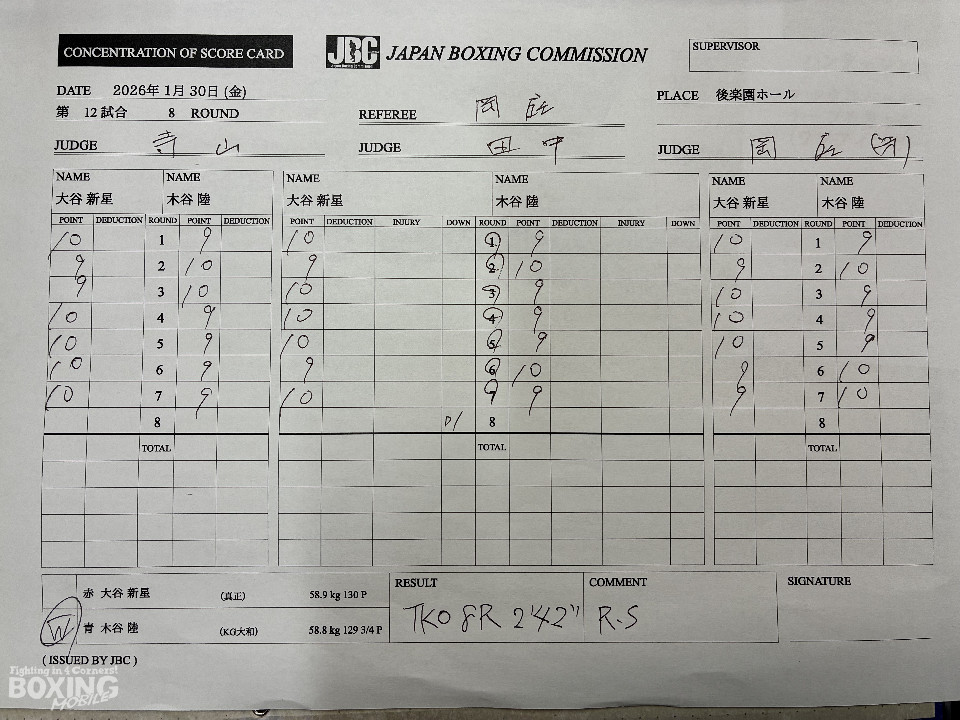 CONCENTRATION OF SCORE CARD
JBC JAPAN BOXING COMMISSION
SUPERVISOR
DATE 2026年 1月 30日 (金)
PLACE 後楽園ホール
第 12試合 8 ROUND
REFEREE 岡庭
JUDGE 寺山 JUDGE 田中 JUDGE 岡庭
NAME NAME NAME NAME NAME NAME
大谷 新星 木谷 陸 大谷 新星 木谷 陸 大谷 新星 木谷 陸
POINT DEDUCTION ROUND POINT DEDUCTION POINT DEDUCTION INJURY DOWN ROUND POINT DEDUCTION INJURY DOWN POINT DEDUCTION ROUND POINT DEDUCTION
10 1 9 10 1 9 10 1 9
9 2 10 9 2 10 9 2 10
9 3 10 10 3 9 10 3 9
10 4 9 10 4 9 10 4 9
10 5 9 10 5 9 10 5 9
10 6 9 9 6 10 9 6 10
10 7 9 10 7 9 9 7 10
8 D/ 8 8
TOTAL TOTAL TOTAL
赤 大谷 新星 (真正) 58.9 kg 130 P
W 青 木谷 陸 (KG大和) 58.8 kg 129 3/4 P
RESULT COMMENT SIGNATURE
TKO 8R 2'42" R.S
( ISSUED BY JBC )
Fighting in 4 Corners!
BOXING
MOBILE